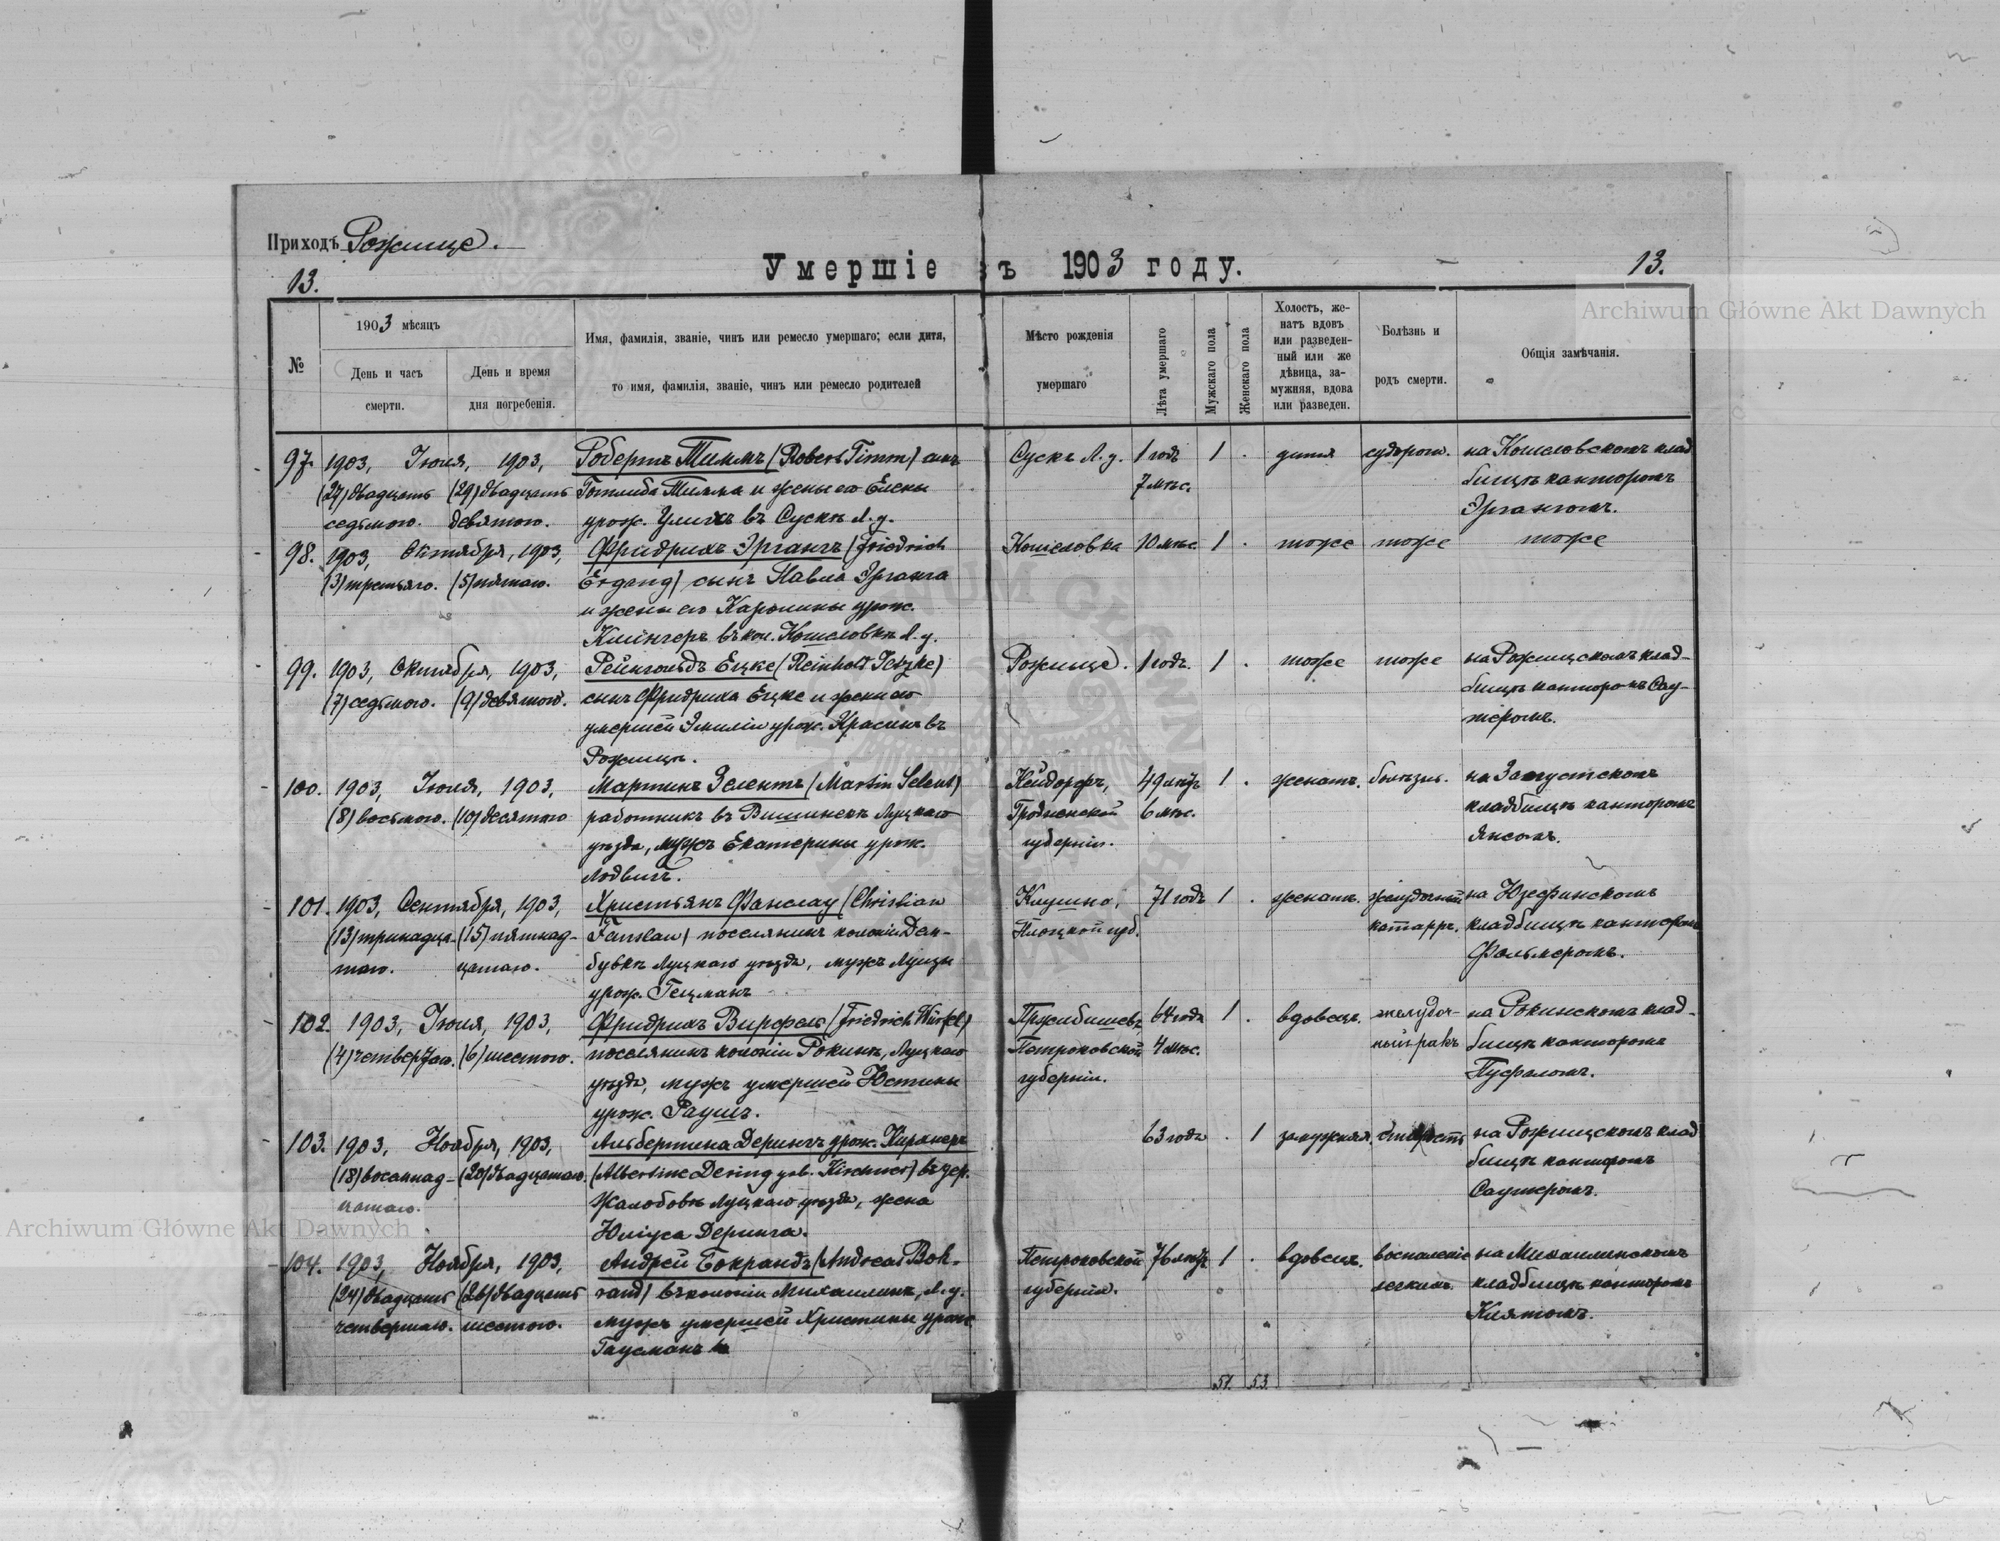 Приходъ Рожище.
Умершіе въ 1903 году.
13.
13.
№
1903 мѣсяцъ
День и часъ
смерти.
День и время
дня погребенія.
Имя, фамилія, званіе, чинъ или ремесло умершаго; если дитя,
то имя, фамилія, званіе, чинъ или ремесло родителей
Мѣсто рожденія
умершаго
Лѣта умершаго
Мужскаго пола
Женскаго пола
Холостъ, же-
натъ вдовъ
или разведен-
ный или же
дѣвица, за-
мужняя, вдова
или разведен.
Болѣзнь и
родъ смерти.
Общія замѣчанія.
97. 1903, Іюля, 1903, Робертъ Тиммъ (Robert Timm) сынъ Сускъ Л. у. 1 годъ 1 . дитя судороги. на Кошеловскомъ клад
(27) двадцать (29) двадцать Готлиба Тимма и жены его Елены 7 мѣс. бищѣ канторомъ
седьмого. девятого. урож. Улихъ въ Сускѣ Л. у. Эргангомъ.
98. 1903, Октября, 1903, Фридрихъ Эргангъ (Friedrich Кошеловка 10 мѣс. 1 . тоже тоже тоже
(3) третьяго. (5) пятаго. Ergang) сынъ Павла Эрганга
и жены его Каролины урож.
Клингеръ въ кол. Кошеловкѣ Л. у.
99. 1903, Октября, 1903, Рейнгольдъ Ецке (Reinhold Jetzke) Рожище. 1 годъ. 1 . тоже тоже на Рожищскомъ клад-
(7) седьмого. (9) девятого. сынъ Фридриха Ецке и жены его бищѣ канторомъ Сау-
умершей Эмиліи урож. Красинъ въ теромъ.
Рожищѣ.
100. 1903, Іюля, 1903, Мартинъ Зелентъ (Martin Selent) Нейдорфъ, 49 лѣтъ 1 . женатъ. болѣзнь. на Загустскомъ
(8) восьмого. (10) десятого работникъ въ Вишинекѣ Луцкаго Гродненской 6 мѣс. кладбищѣ канторомъ
уѣзда, мужъ Екатерины урож. губерніи. Янсомъ.
Людвигъ.
101. 1903, Сентября, 1903, Христьянъ Фанслау (Christian 71 годъ 1 . женатъ. желудочный на Юзефинскомъ
(13) тринадца- (15) пятнад- Fanslau) поселянинъ колоніи Дем- Плоцкой губ. катарръ. кладбищѣ канторомъ
таго. цатаго. бувкѣ Луцкаго уѣзда, мужъ Луизы Фольмеромъ.
урож. Гецманъ
102. 1903, Іюля, 1903, Фридрихъ Вирфель (Friedrich Würfel) Пржибишевъ, 64 года 1 . вдовецъ. желудоч- на Рокинскомъ клад-
(4) четвертаго. (6) шестого. поселянинъ колоніи Рокинѣ, Луцкаго Петроковской 4 мѣс. ный ракъ бищѣ канторомъ
уѣзда, мужъ умершей Юстины губерніи. Пуфалемъ.
урож. Раушъ.
103. 1903, Ноября, 1903, Альбертина Дерингъ урож. Кирхнеръ 63 года . 1 замужняя старость на Рожищскомъ клад
(18) восемнад- (20) двадцатаго. (Albertine Dering geb. Kirchner) бищѣ канторомъ
цатаго. Жалобовѣ Луцкаго уѣзда, жена Саутеромъ.
Юліуса Деринга.
104. 1903, Ноября, 1903, Андрей Бокрандъ (Andreas Bok- Петроковской 76 лѣтъ 1 . вдовецъ. воспаленіе на Михалинскомъ
(24) двадцать (26) двадцать rand) въ колоніи Михалинѣ, Л. у. губерніи. легкихъ. кладбищѣ канторомъ
четвертаго. шестого. мужъ умершей Христины урож.
Гаусманъ
51. 53.
Archiwum Główne Akt Dawnych
Archiwum Główne Akt Dawnych